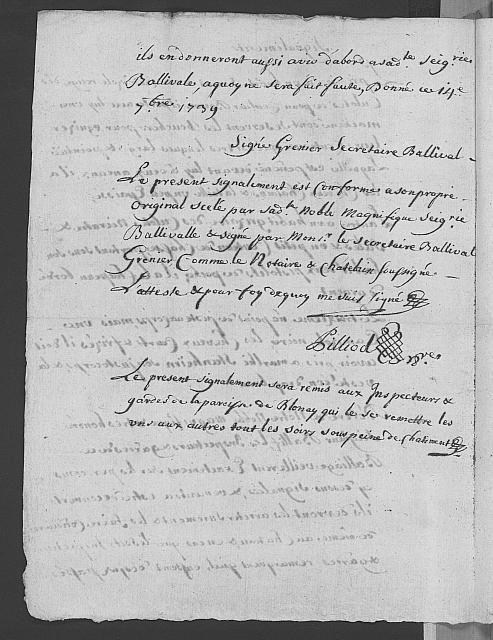 ils en donneront aussi avis d'abord a sad.te Seig.rie
Ballivale, aquoy ne sera fait faute, Donné ce 14.e
7.bre 1739
Signé Grenier Secretaire Ballival
Le present signalement est Conforme a son propre
Original Scelé par sad.te Noble Magnifique Seig.rie
Ballivalle & signé par Mons.r le Secretaire Ballival
Grenier Comme le Notaire & Chatelain soussigné
L'atteste & pour foy de quoy me suis signé
Billiod
Le present signalement sera remis aux Inspecteurs &
gardes de la paroisse de Blonay qui le se remettre les
uns aux autres tout les soirs sous peine de Chatiment